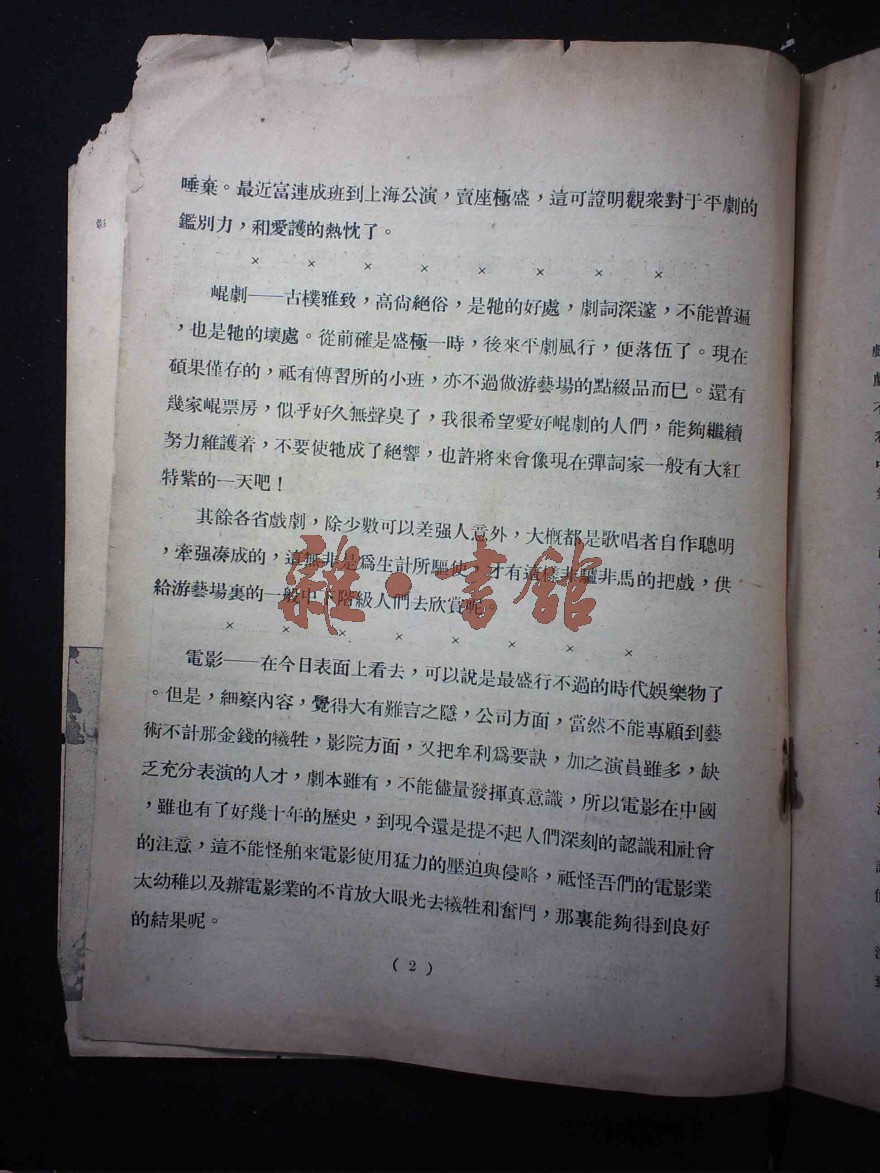 唾棄。最近富連成班到上海公演，賣座極盛，這可證明觀衆對于平劇的
鑑別力，和愛護的熱忱了。
× × × × × × × ×
崐劇——古樸雅致，高尙絕俗，是牠的好處，劇詞深邃，不能普遍
，也是牠的壞處。從前確是盛極一時，後來平劇風行，便落伍了。現在
碩果僅存的，祗有傳習所的小班，亦不過做游藝場的點綴品而巳。還有
幾家崐票房，似乎好久無聲臭了，我很希望愛好崐劇的人們，能夠繼續
努力維護着，不要使牠成了絕響，也許將來會像現在彈詞家一般有大紅
特紫的一天吧！
其餘各省戲劇，除少數可以差强人意外，大槪都是歌唱者自作聰明
，牽强凑成的，這無非是爲生計所驅使，才有這樣非驢非馬的把戲，供
給游藝場裏的一般中下階級人們去欣賞呢。
× × × × × × × ×
電影——在今日表面上看去，可以說是最盛行不過的時代娛樂物了
。但是，細察內容，覺得大有難言之隱，公司方面，當然不能專顧到藝
術不計那金錢的犧牲，影院方面，又把牟利爲要訣，加之演員雖多，缺
乏充分表演的人才，劇本雖有，不能儘量發揮真意識，所以電影在中國
，雖也有了好幾十年的歷史，到現今還是提不起人們深刻的認識和社會
的注意，這不能怪舶來電影使用猛力的壓迫與侵略，祗怪吾們的電影業
太幼稚以及辦電影業的不肯放大眼光去犧牲和奮鬥，那裏能夠得到良好
的結果呢。
( 2 )
雜·書館